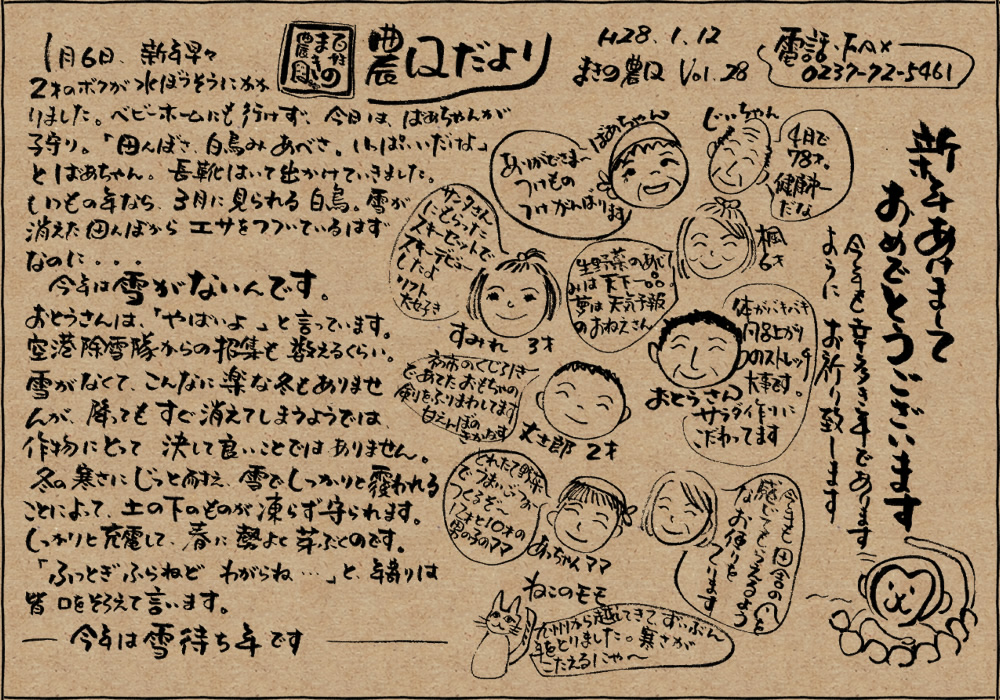 百姓の
まきの
農園
農口だより
H28.1.12
まきの農口 Vol.28
電話・FAX
0237-72-5461
1月6日、新年早々
2才のボクが水ぼうそうにかか
りました。ベビーホームにも行けず、今日は、ばあちゃんが
子守り。「田んぼさ、白鳥みあべさ。いっぱいいだよ」
とばあちゃん。長靴はいて出かけていきました。
いつもの年なら、3月に見られる白鳥。雪が
消えた田んぼからエサをつついているはず
なのに・・・
今年は雪がないんです。
おとうさんは、「やばいよ」と言っています。
空港除雪隊からの招集も数えるくらい。
雪がなくて、こんなに楽な冬もありませ
んが、降ってもすぐ消えてしまうようでは、
作物にとって 決して良いことではありません。
冬の寒さにじっと耐え、雪でしっかりと覆われる
ことによって、土の下のものが凍らず守られます。
しっかりと充電して、春に勢よく芽ぶくのです。
「ふっとぎふらねど わがらね…」と、年寄りは
皆口をそろえて言います。
― 今年は雪待ち年です ―
新年あけまして
おめでとうございます
今年も幸多き年であります
ように お祈り致します
じいちゃん
4日で
78才。
健康第一
だな
ばあちゃん
ありがどさま〜
つけもの
つけがんばります
楓
6才
生野菜のあじ
みは天下一品。
夢は天気予報
のおねえさん
サンタさん
にもらった
スキーセットで
スキーデビュー
したよ
リフト
大好き
すみれ 3才
おとうさん
体がバキバキ
向上がり
のストレッチ
大事です。
サラダ作りに
こだわってます
初市のくじ引き
であてたおもちゃの
剣をふりまわしてます
丈士郎 2才
とれたて野菜
でうまいごっつぉ
つくるぞ〜
17才と10才の
男の子のママ
あっちゃんママ
今年も田舎の心を
感じてもらえるよう
なお便りを
つくります
ねこのモモ
九州から越してきて、ずいぶん
年をとりました。寒さが
こたえるにゃ〜